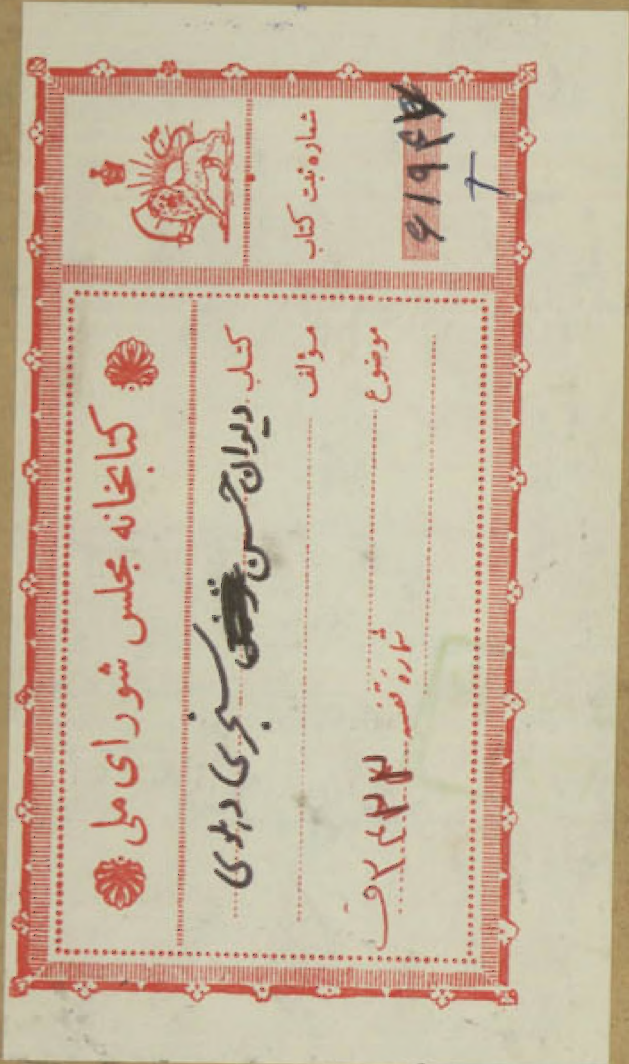 کتابخانه مجلس شورای ملی
کتاب دیوان حسن سنجری دهلوی
مؤلف
موضوع
شماره قفسه ۲۴۳۳ ق
شماره ثبت کتاب